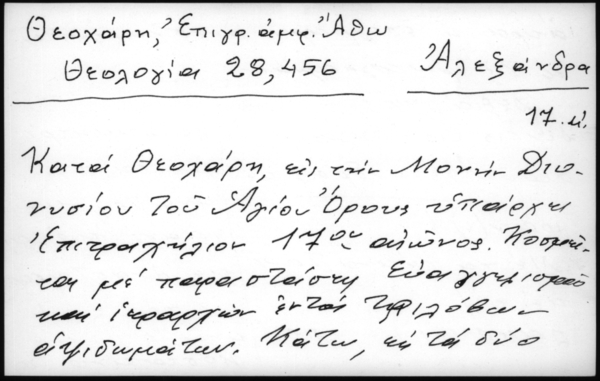 Θεοχάρη, Ἐπιγρ. ἀμφ. Ἄθω
Θεολογία 28, 456
Ἀλεξάνδρα
17. αἰ.
Κατά Θεοχάρη, εἰς τήν Μονήν Διο-
νυσίου τοῦ Ἁγίου Ὄρους ὑπάρχει
Ἐπιτραχήλιον 17ου αἰῶνος. Κοσμεῖ-
ται μέ παραστάσεις Εὐαγγελισμοῦ
καί ἱεραρχῶν ἐντός τριλόβων
ἁψιδωμάτων. Κάτω, εἰς τά δύο